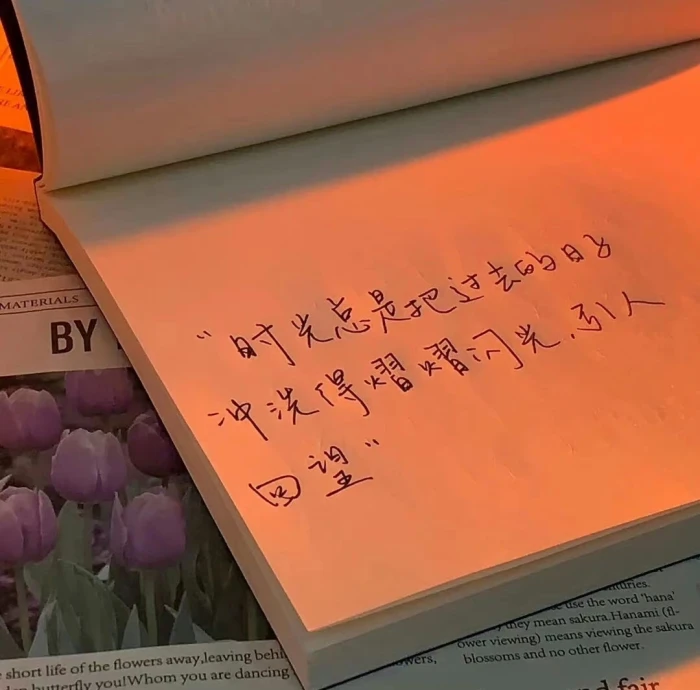 MATERIALS
BY
“时光总是把过去的日子
冲洗得熠熠闪光，引人
回望”
short life of the flowers away,leaving behi
butterfly you!Whom you are dancing
use the word 'hana'
they mean sakura.Hanami (fl-
ower viewing) means viewing the sakura
blossoms and no other flower.
owers,